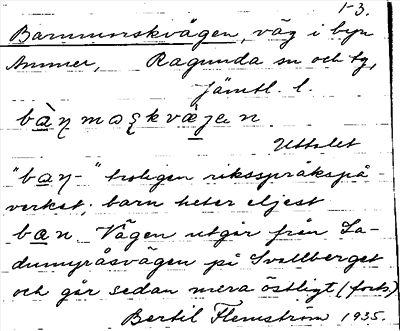 1-3.
Barnmorskvägen, väg i byn
Ammer, Ragunda sn och tg,
Jämtl. l.
bàɳmoʂkvæ̀jen
Uttalet
"baɳ-" troligen riksspråkspå-
verkat; barn heter eljest
bæn. Vägen utgår från La-
dumyråsvägen på Svallberget
och går sedan mera östligt (forts.)
Bertil Flemström 1935.